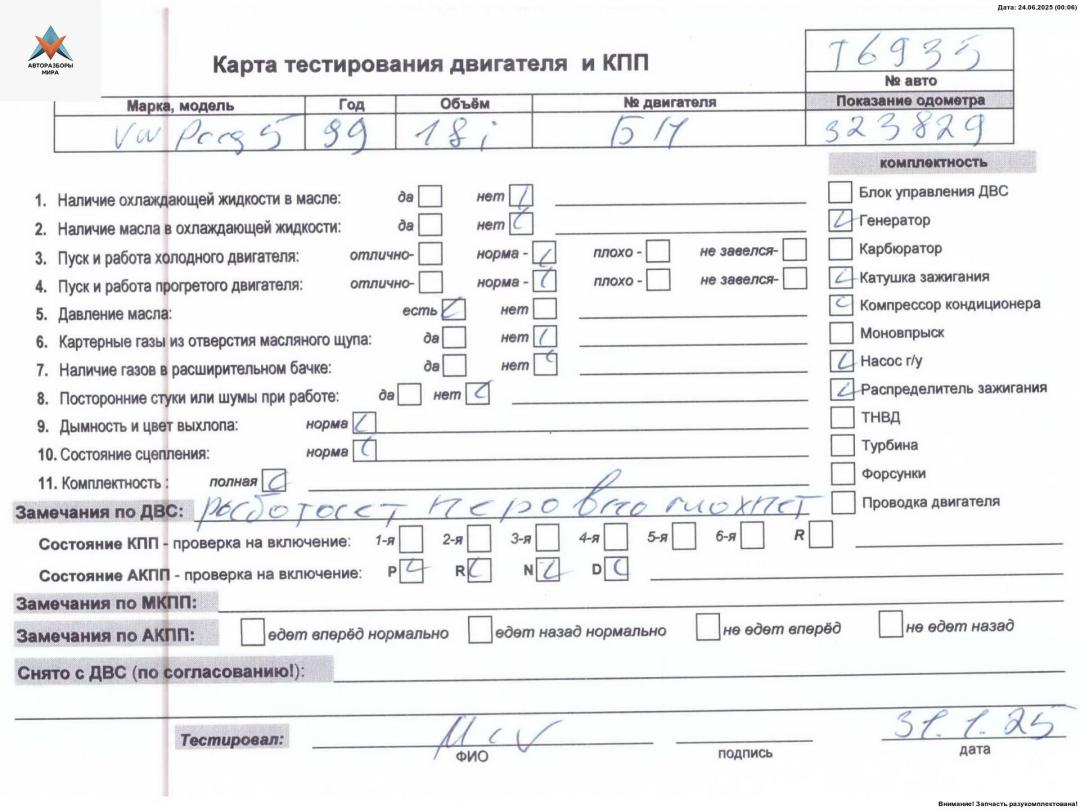 Дата: 24.06.2025 (00:06)
АВТОРАЗБОРЫ
МИРА
Карта тестирования двигателя и КПП
T6935
№ авто
Марка, модель Год Объём № двигателя Показание одометра
VW 99 18i 323829
комплектность
1. Наличие охлаждающей жидкости в масле: да нет
2. Наличие масла в охлаждающей жидкости: да нет
3. Пуск и работа холодного двигателя: отлично- норма - плохо - не завелся-
4. Пуск и работа прогретого двигателя: отлично- норма - плохо - не завелся-
5. Давление масла: есть нет
6. Картерные газы из отверстия масляного щупа: да нет
7. Наличие газов в расширительном бачке: да нет
8. Посторонние стуки или шумы при работе: да нет
9. Дымность и цвет выхлопа: норма
10. Состояние сцепления: норма
11. Комплектность : полная
Блок управления ДВС
Генератор
Карбюратор
Катушка зажигания
Компрессор кондиционера
Моновпрыск
Насос г/у
Распределитель зажигания
ТНВД
Турбина
Форсунки
Проводка двигателя
Замечания по ДВС: работает неровно глохнет
Состояние КПП - проверка на включение: 1-я 2-я 3-я 4-я 5-я 6-я R
Состояние АКПП - проверка на включение: P R N D
Замечания по МКПП:
Замечания по АКПП: едет вперёд нормально едет назад нормально не едет вперёд не едет назад
Снято с ДВС (по согласованию!):
Тестировал: 31.1.25
ФИО подпись дата
Внимание! Запчасть разукомплектована!